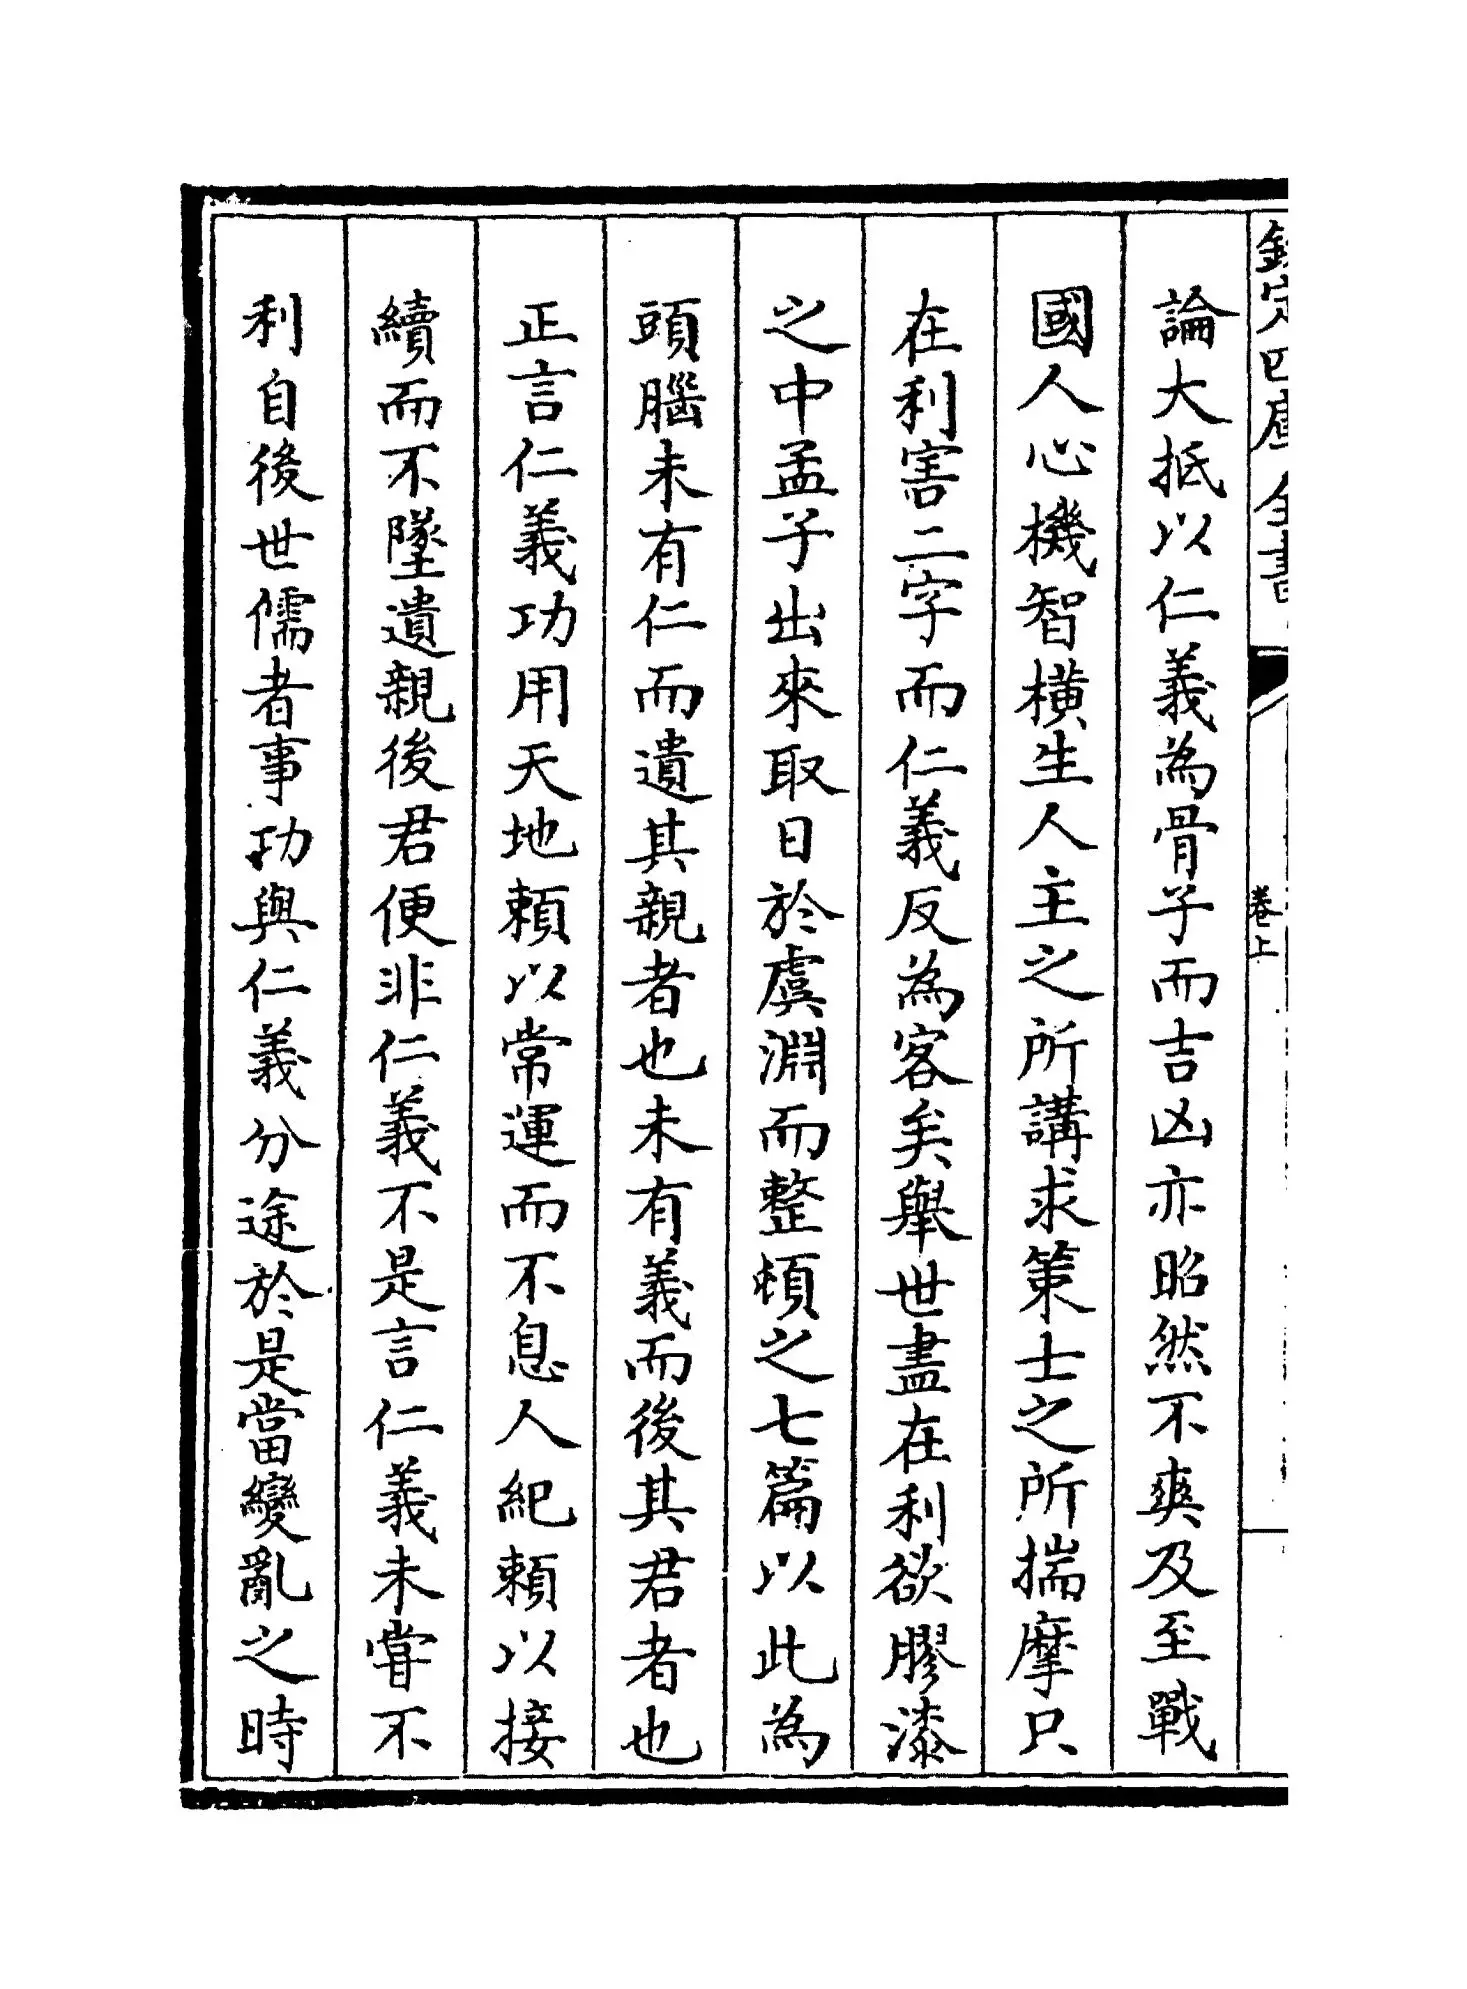 欽定四庫全書
卷上
論大抵以仁義為骨子而吉凶亦昭然不爽及至戰
國人心機智橫生人主之所講求策士之所揣摩只
在利害二字而仁義反為客矣舉世盡在利欲膠漆
之中孟子出來取日於虞淵而整頓之七篇以此為
頭腦未有仁而遺其親者也未有義而後其君者也
正言仁義功用天地賴以常運而不息人紀賴以接
續而不墜遺親後君便非仁義不是言仁義未甞不
利自後世儒者事功與仁義分途於是當變亂之時